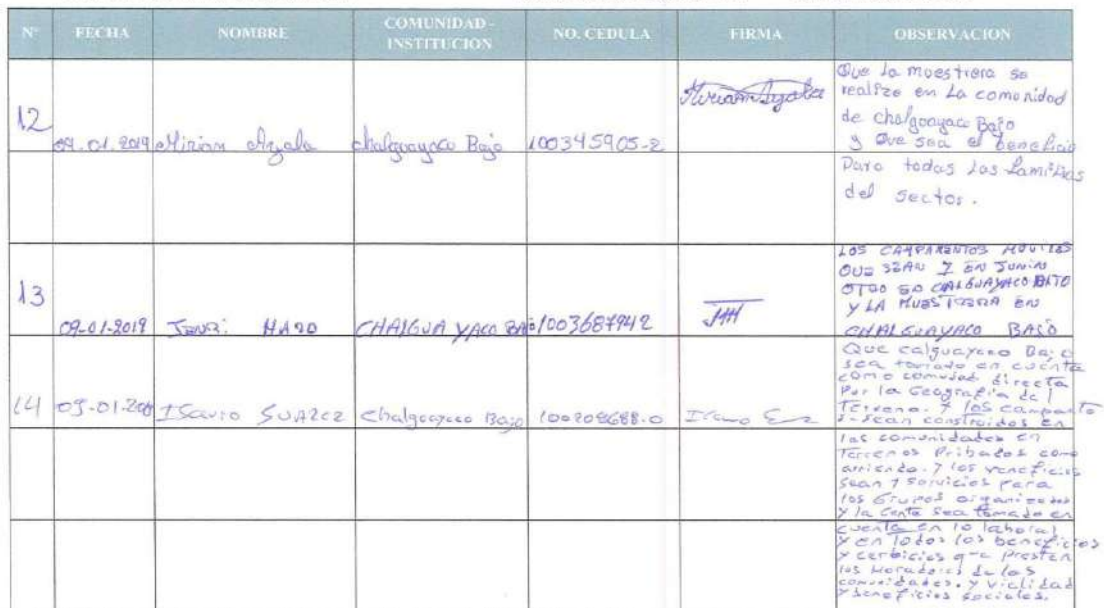 N° FECHA NOMBRE COMUNIDAD - INSTITUCION NO. CEDULA FIRMA OBSERVACION
12 09.01.2019 Mirian Ayala chalguayaco Bajo 100345905-2 Miriam Ayala
Que La muestrera se
realize en La comunidad
de chalguayaco Bajo
y Que sea el beneficio
Para todas Las familias
del sector.
13 09-01-2019 HARO CHALGUA YACO BAJO 1003687942
LOS CAMPAMENTOS MOVILES
QUE SEAN 7 EN JUNIN
OTRO EN CALGUAYACO BAJO
Y LA MUESTRERA EN
CHALGUAYACO BAJO
14 09-01-2019 ISauro SUAREZ Chalguayaco Bajo 100208688-0
Que calguayaco Bajo
sea tomado en cuenta
como comunidad directa
Por la Geografia del
Terreno. y los campamento
s-sean construidos en
las comunidades en
Terrenos Pribados como
arriendo. y los veneficios
sean y servicios para
los Grupos organizados
y la Gente sea tomado en
cuenta en lo laboral
y en Todos los beneficios
y cerbicios que presten
los Moradores de las
comunidades. y vialidad
y beneficios sociales.